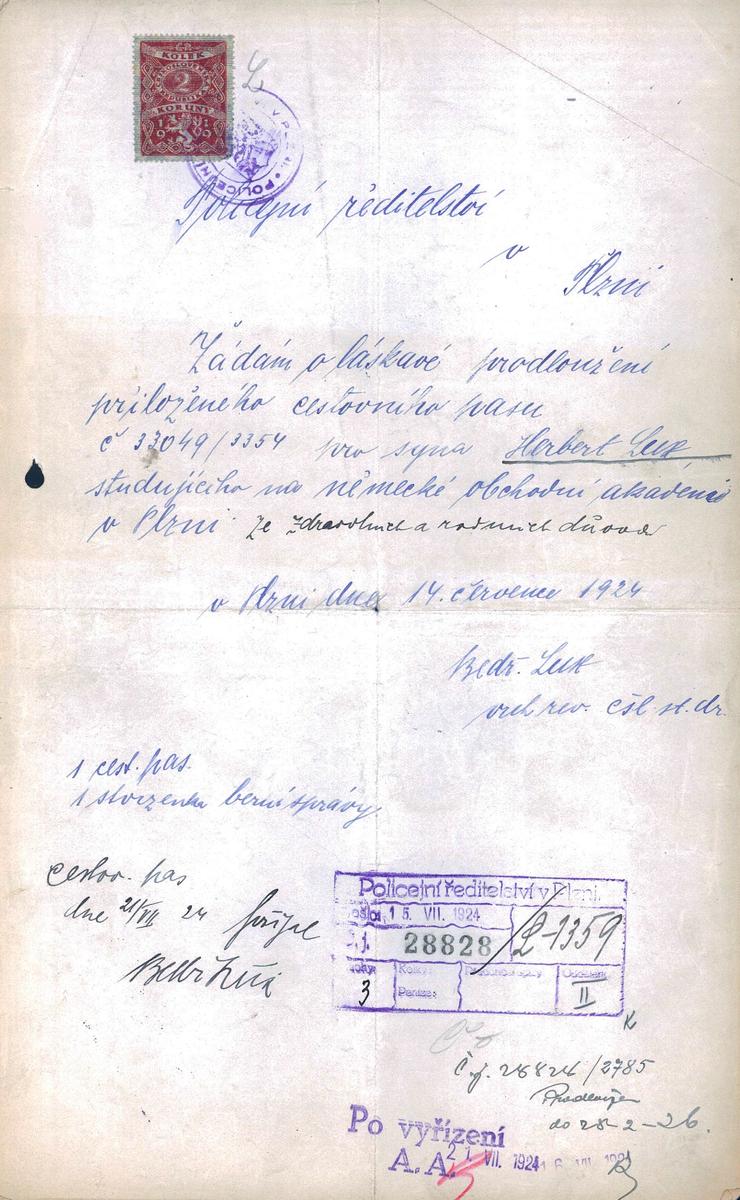 KOLEK
2
KORUNY
1919
V PLZNI • POLICEJNÍ
L
Policejní ředitelství
v
Plzni
Žádám o láskavé prodloužení
přiloženého cestovního pasu
č 33049/3354 pro syna Herbert Luk
studujícího na německé obchodní akademii
v Plzni ze zdravotních a rodinných důvodů
v Plzni dne 14. července 1924
Bedř. Luk
vrch. rev. čsl. st. dr.
1 cest. pas.
1 stvrzenka berní správy
cestov. pas
dne 21/VII 24 přijal
Bedř Luk
Policejní ředitelství v Plzni.
Došlo: 15. VII. 1924
č.j. 28828 / L-1359
Kolky:
Oddělení
3
Peníze:
II
K
č.j. 28828/2785
Prodloužen
do 28-2-26.
Po vyřízení
A. A. 21. VII. 1924 16. VII. 1924